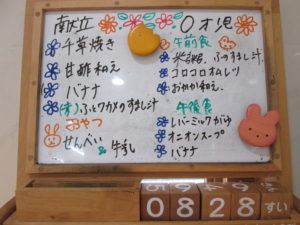 献立
千草焼き
甘酢和え
バナナ
(す)ふとワカメのすまし汁
おやつ
せんべい 牛乳
0才児
午前食
ふのすまし汁
コロコロオムレツ
おかか和え
午後食
レバーミルクがゆ
オニオンスープ
バナナ
0828 すい